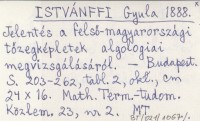 ISTVÁNFFI Gyula 1888.
Jelentés a felső-magyarországi
tőzegképletek algologiai
megvizsgálásáról. — Budapest.
S. 203-262, tabl. 2, okl., cm
24 x 16. Math. Term.-tudom.
Közlem. 23, nr 2. MT